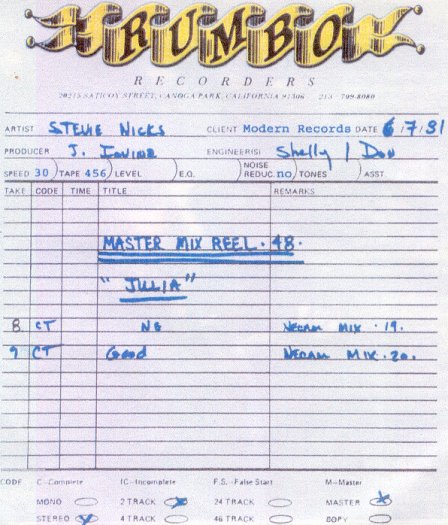 RUMBO
RECORDERS
20215 SATICOY STREET, CANOGA PARK, CALIFORNIA 91306 213 709-8080
ARTIST STEVIE NICKS CLIENT Modern Records DATE 6/7/81
PRODUCER J. Iovine ENGINEER(S) Shelly / Don
SPEED 30 TAPE 456 LEVEL E.Q. NOISE REDUC. no TONES ASST.
TAKE CODE TIME TITLE REMARKS
MASTER MIX REEL · 48 ·
"JULIA"
8 CT NG NECAM MIX · 19.
9 CT Good NECAM MIX · 20.
CODE C - Complete IC - Incomplete F.S. - False Start M - Master
MONO 2 TRACK 24 TRACK MASTER
STEREO 4 TRACK 46 TRACK COPY